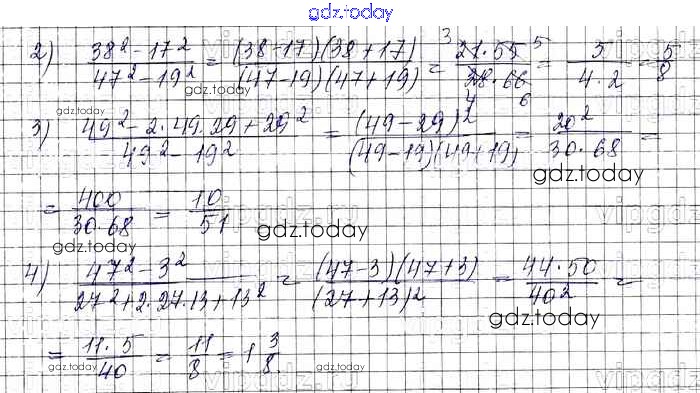 gdz.today
2) (38² - 17²)/(47² - 19²) = ((38-17)(38+17))/((47-19)(47+19)) = (21·55)/(28·66) = 5/(4·2) = 5/8
3 5
4 6
gdz.today
3) (49² - 2·49·29 + 29²)/(49² - 19²) = (49-29)²/((49-19)(49+19)) = 20²/(30·68) =
gdz.today
= 400/(30·68) = 10/51
gdz.today gdz.today
4) (47² - 3²)/(27² + 2·27·13 + 13²) = ((47-3)(47+3))/(27+13)² = (44·50)/40² =
gdz.today
= (11·5)/40 = 11/8 = 1 3/8.
gdz.today